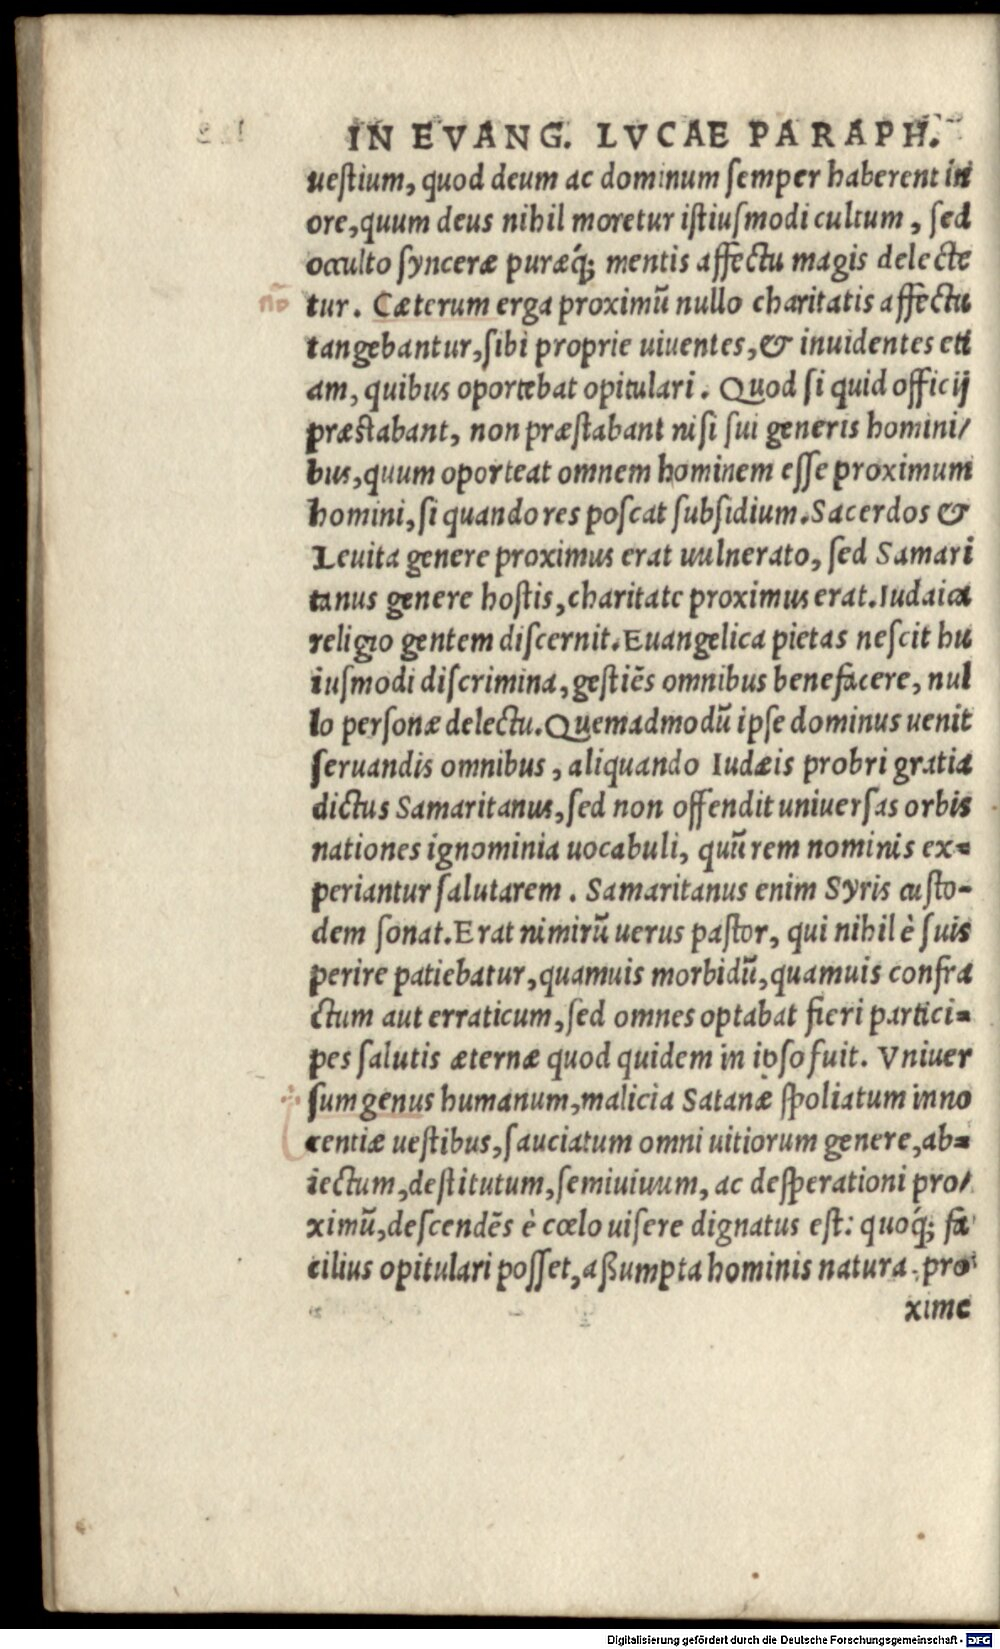 IN EVANG. LVCAE PARAPH.
ueſtium, quod deum ac dominum ſemper haberent in
ore, quum deus nihil moretur iſtiuſmodi cultum, ſed
occulto ſynceræ puræq́; mentis affectu magis delecte
tur. Cæterum erga proximũ nullo charitatis affectu
tangebantur, ſibi proprie uiuentes, & inuidentes eti
am, quibus oportebat opitulari. Quod ſi quid officij
præſtabant, non præſtabant niſi ſui generis homini/
bus, quum oporteat omnem hominem eſſe proximum
homini, ſi quando res poſcat ſubſidium. Sacerdos &
Leuita genere proximus erat uulnerato, ſed Samari
tanus genere hoſtis, charitate proximus erat. Iudaica
religio gentem diſcernit. Euangelica pietas neſcit hu
iuſmodi diſcrimina, geſtiẽs omnibus benefacere, nul
lo perſonæ delectu. Quemadmodũ ipſe dominus uenit
ſeruandis omnibus, aliquando Iudæis probri gratia
dictus Samaritanus, ſed non offendit uniuerſas orbis
nationes ignominia uocabuli, quũ rem nominis ex=
periantur ſalutarem. Samaritanus enim Syris cuſto-
dem ſonat. Erat nimirũ uerus paſtor, qui nihil è ſuis
perire patiebatur, quamuis morbidũ, quamuis confra
ctum aut erraticum, ſed omnes optabat fieri partici=
pes ſalutis æternæ quod quidem in ipſo fuit. Vniuer
ſum genus humanum, malicia Satanæ ſpoliatum inno
centiæ ueſtibus, ſauciatum omni uitiorum genere, ab=
iectum, deſtitutum, ſemiuiuum, ac deſperationi pro/
ximũ, deſcendẽs è cœlo uiſere dignatus eſt: quoq́; fa
cilius opitulari poſſet, aßumpta hominis natura, pro
xime
Digitalisierung gefördert durch die Deutsche Forschungsgemeinschaft - DFG